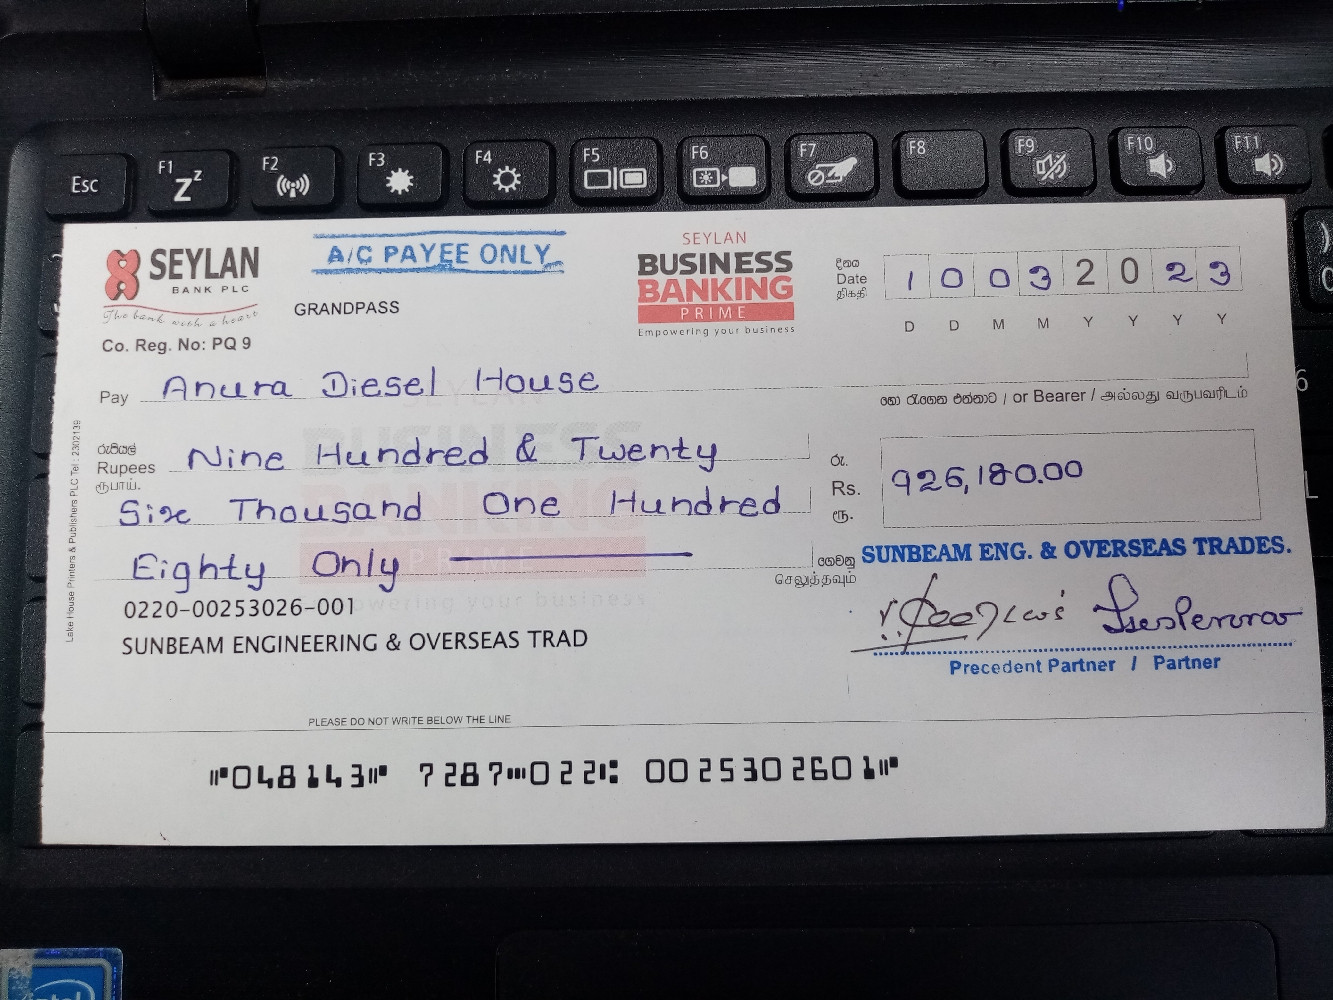 Esc F1 Zz F2 F3 F4 F5 F6 F7 F8 F9 F10 F11
SEYLAN
BANK PLC
The bank with a heart
Co. Reg. No: PQ 9
A/C PAYEE ONLY
GRANDPASS
SEYLAN
BUSINESS
BANKING
PRIME
Empowering your business
දිනය
Date
திகதி
1 0 0 3 2 0 2 3
D D M M Y Y Y Y
Pay Anura Diesel House
හෝ රැගෙන එන්නාට / or Bearer / அல்லது வருபவரிடம்
රුපියල්
Rupees
ரூபாய்.
Nine Hundred & Twenty
Six Thousand One Hundred
Eighty Only
රු.
Rs.
ரூ.
926,180.00
ගෙවනු
செலுத்தவும்
SUNBEAM ENG. & OVERSEAS TRADES.
Precedent Partner / Partner
0220-00253026-001
SUNBEAM ENGINEERING & OVERSEAS TRAD
PLEASE DO NOT WRITE BELOW THE LINE
⑈048143⑈ 7287⑉022⑆ 0025302601⑈
Lake House Printers & Publishers PLC Tel : 2302139
6
intel